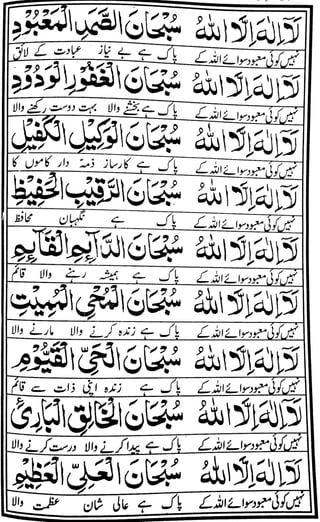 لَآ اِلٰهَ اِلَّا اللّٰهُ سُبْحَانَ الصَّمَدِ الْمَعْبُوْدِ
نہیں کوئی معبود سوائے اللہ کے پاک ہے بے نیاز عبادت کے لائق
لَآ اِلٰهَ اِلَّا اللّٰهُ سُبْحَانَ الْغَفُوْرِ الْوَدُوْدِ
نہیں کوئی معبود سوائے اللہ کے پاک ہے بخشنے والا بہت دوست رکھنے والا
لَآ اِلٰهَ اِلَّا اللّٰهُ سُبْحَانَ الْوَكِيْلِ الْكَفِيْلِ
نہیں کوئی معبود سوائے اللہ کے پاک ہے کارساز ذمہ دار کاموں کا
لَآ اِلٰهَ اِلَّا اللّٰهُ سُبْحَانَ الرَّقِيْبِ الْحَفِيْظِ
نہیں کوئی معبود سوائے اللہ کے پاک ہے نگہبان محافظ
لَآ اِلٰهَ اِلَّا اللّٰهُ سُبْحَانَ الدَّآىِٕمِ الْقَآىِٕمِ
نہیں کوئی معبود سوائے اللہ کے پاک ہے ہمیشہ رہنے والا قائم
لَآ اِلٰهَ اِلَّا اللّٰهُ سُبْحَانَ الْمُحْىِ الْمُمِيْتِ
نہیں کوئی معبود سوائے اللہ کے پاک ہے زندہ کرنے والا مارنے والا
لَآ اِلٰهَ اِلَّا اللّٰهُ سُبْحَانَ الْحَىِّ الْقَيُّوْمِ
نہیں کوئی معبود سوائے اللہ کے پاک ہے زندہ اپنی ذات سے قائم
لَآ اِلٰهَ اِلَّا اللّٰهُ سُبْحَانَ الْخَالِقِ الْبَارِئِ
نہیں کوئی معبود سوائے اللہ کے پاک ہے پیدا کرنے والا درست کرنے والا
لَآ اِلٰهَ اِلَّا اللّٰهُ سُبْحَانَ الْعَلِىِّ الْعَظِيْمِ
نہیں کوئی معبود سوائے اللہ کے پاک ہے عالی شان عظمت والا